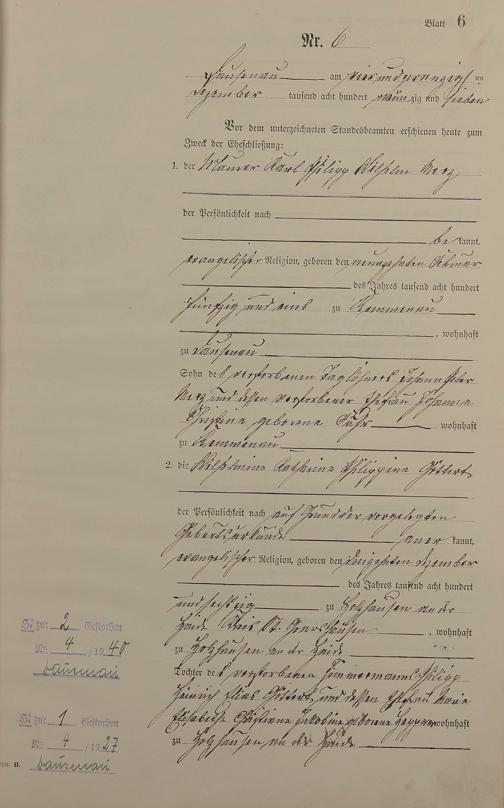 Blatt 6
Nr. 6
Dausenau am vier und zwanzigsten
Dezember tausend acht hundert neunzig und sieben
Vor dem unterzeichneten Standesbeamten erschienen heute zum
Zweck der Eheschließung:
1. der Maurer Karl Philipp Wilhelm Merz
der Persönlichkeit nach
be kannt,
evangelischer Religion, geboren den neunzehnten Februar
des Jahres tausend acht hundert
fünfzig und eins zu Kemmenau
, wohnhaft
zu Dausenau
Sohn des verstorbenen Taglöhners Johann Peter
Merz und dessen verstorbener Ehefrau Johanna
Christine geborene wohnhaft
zu Kemmenau
2. die Wilhelmine Katharine Philippine Göttert
der Persönlichkeit nach auf Grund der vorgelegten
Geburtsurkunde aner kannt,
evangelischer Religion, geboren den Dezember
des Jahres tausend acht hundert
und sechszig zu Holzhausen an der
Heide Kreis St. Goarshausen , wohnhaft
zu Holzhausen an der Heide
Tochter des verstorbenen Zimmermanns Philipp
Heinrich Elias Göttert und dessen Ehefrau Marie
Elisabethe Christiane Jakobine geborene wohnhaft
zu Holzhausen an der Heide
zu: 2 Gestorben
Nr. 4 / 1940
Dausenau
zu: 1 Gestorben
Nr. 4 / 1927
Dausenau
B.